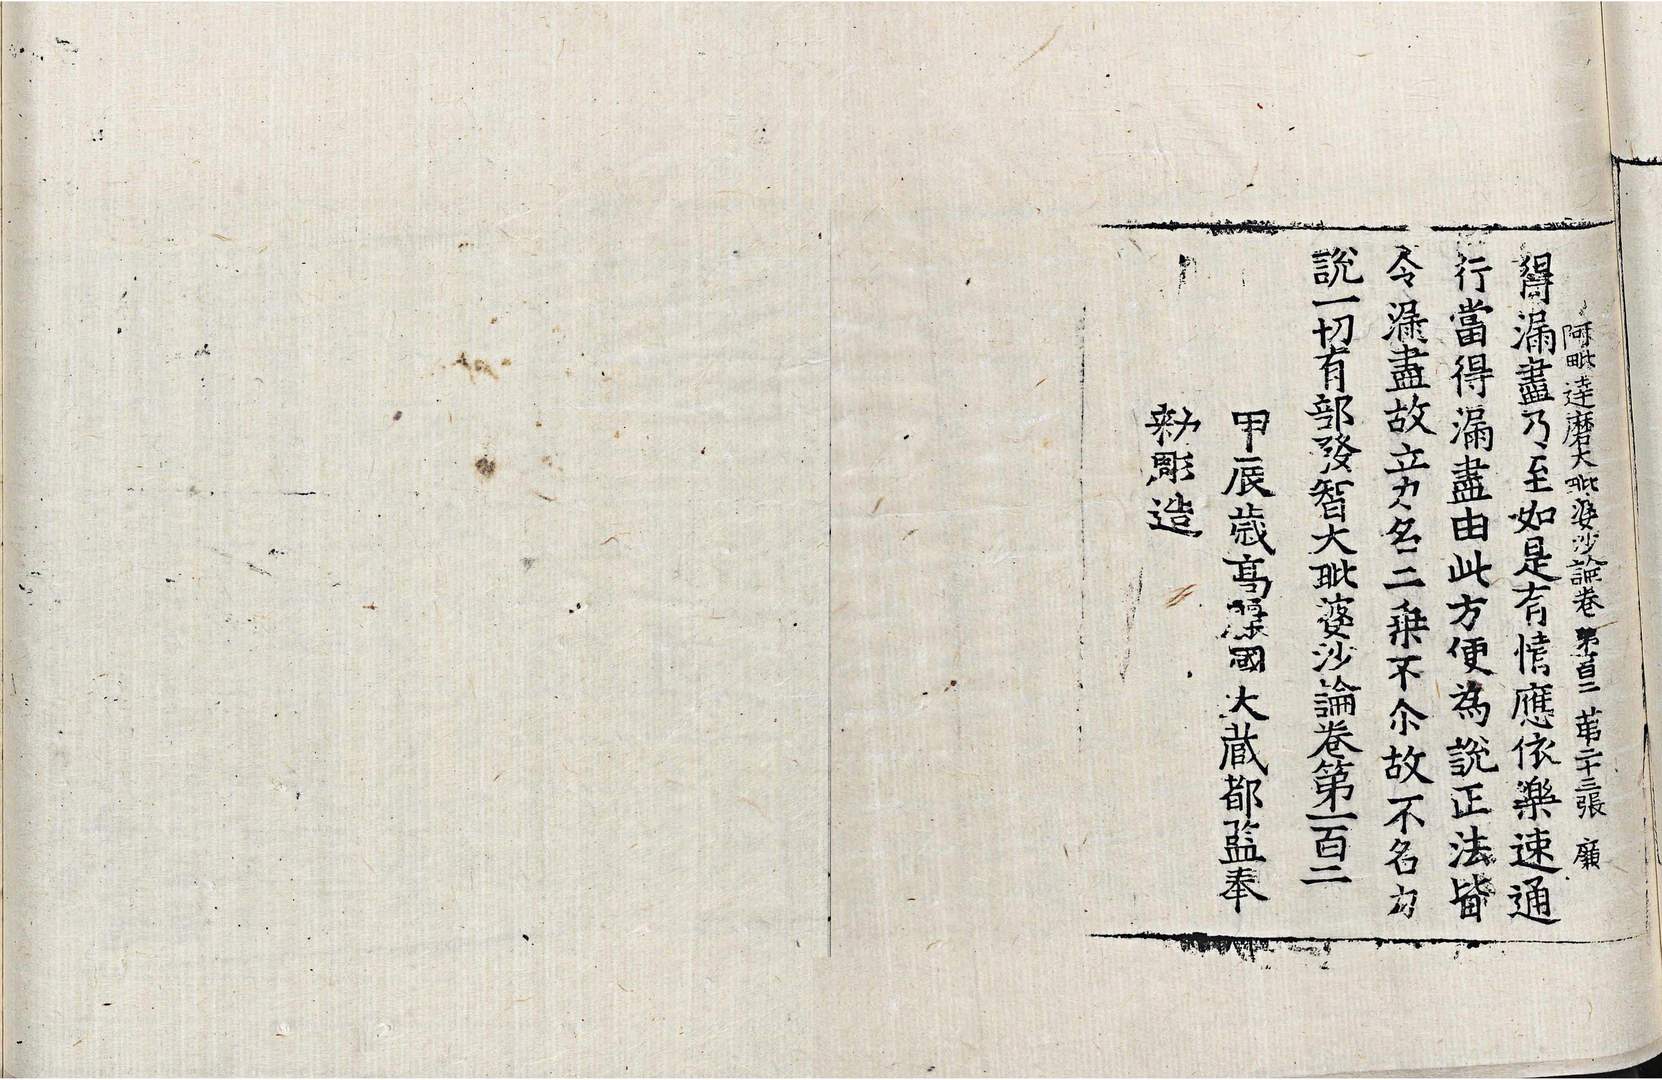 阿毗達磨大毗婆沙論卷第一百二 第二十三張 廟
得漏盡乃至如是有情應依樂速通
行當得漏盡由此方便為說正法皆
令漏盡故立力名二乘不尒故不名力
說一切有部發智大毗婆沙論卷第一百二
甲辰歲高麗國大藏都監奉
勑彫造